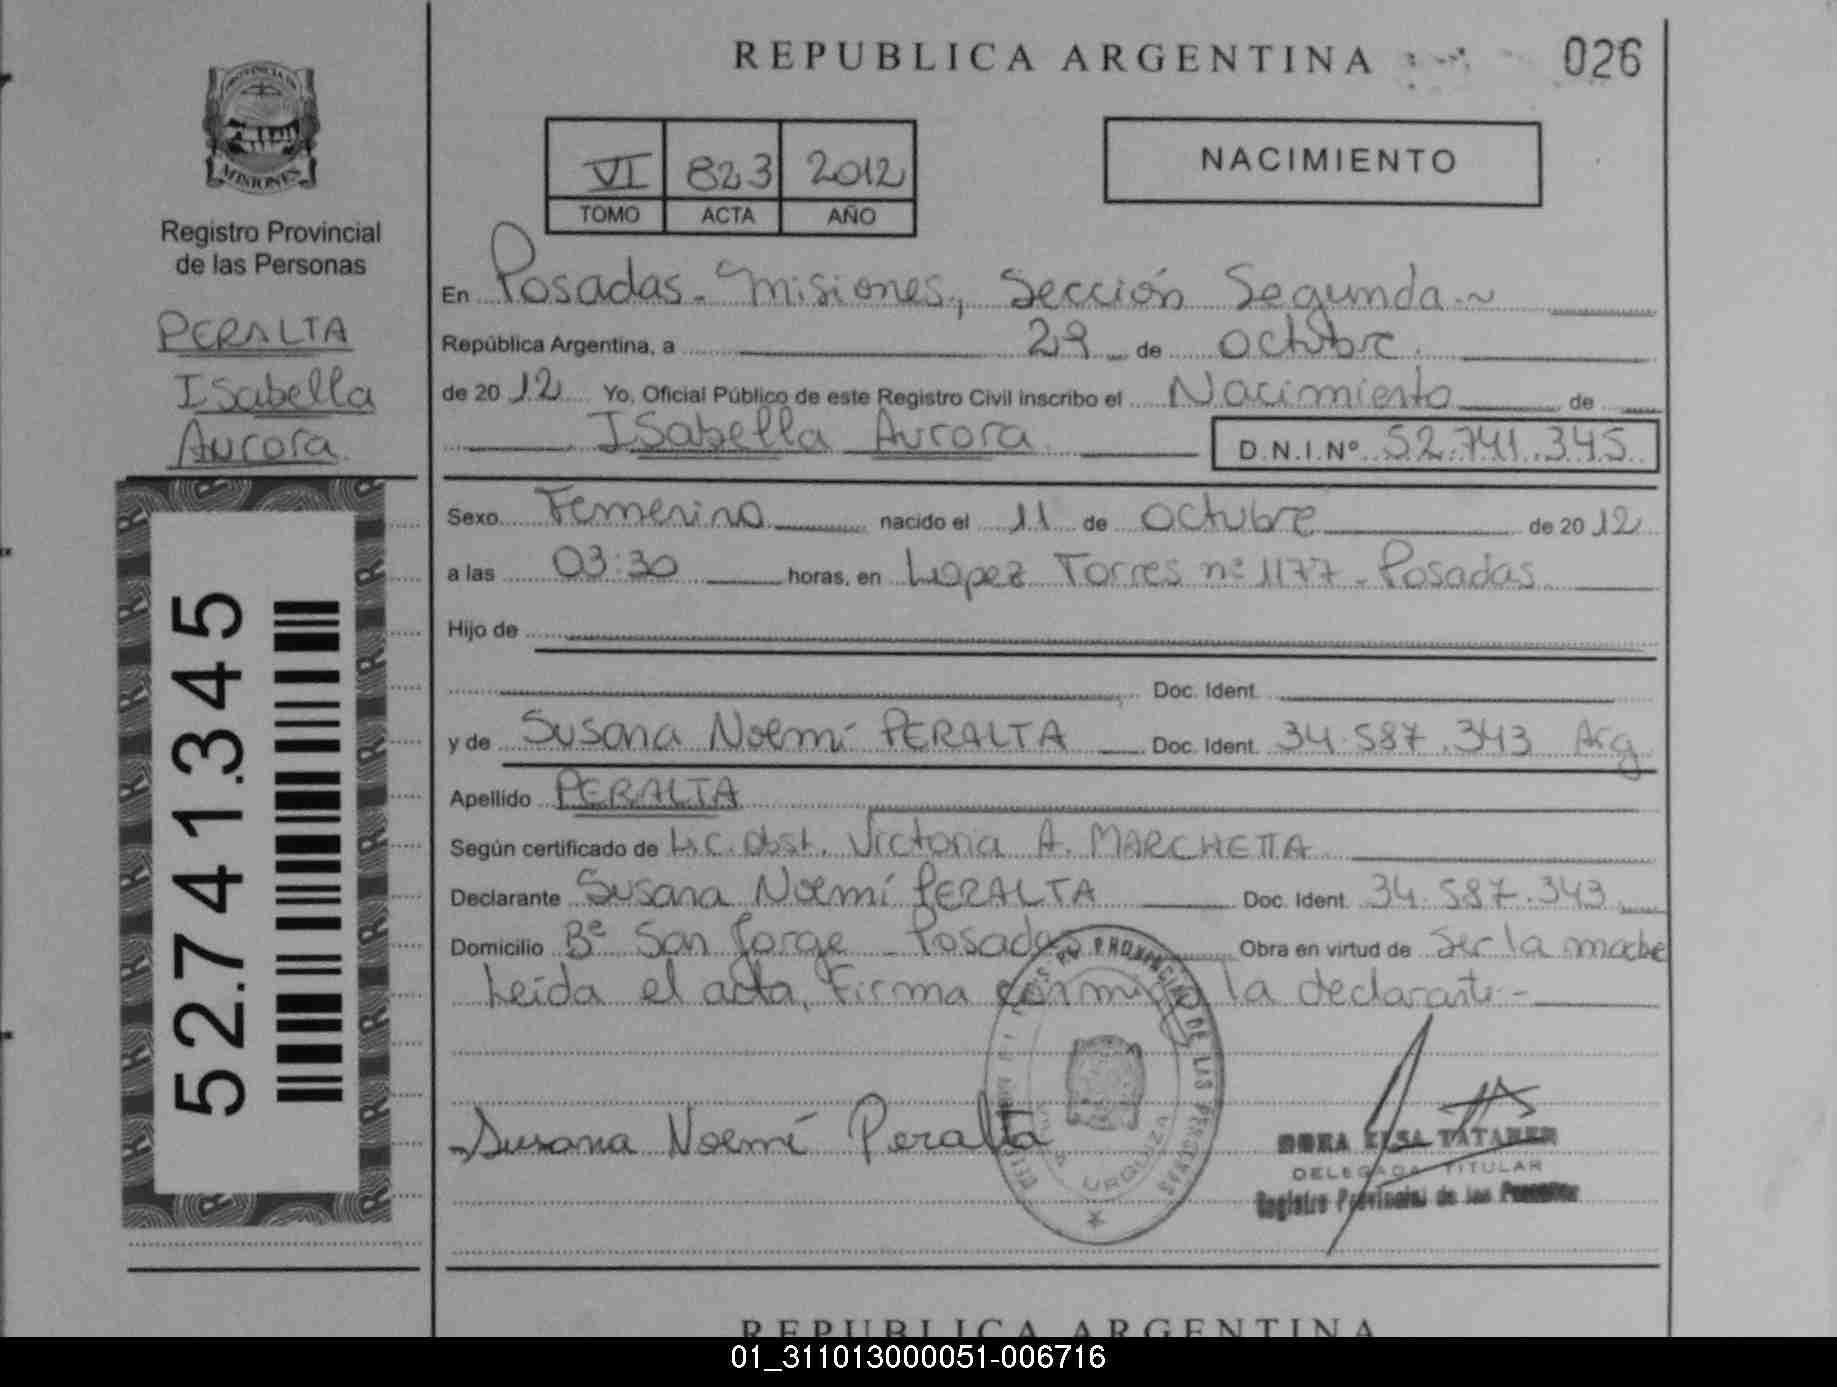 REPUBLICA ARGENTINA
026
PROVINCIA DE
MISIONES
Registro Provincial
de las Personas
PERALTA
Isabella
Aurora.
52.741.345
VI 823 2012
TOMO ACTA AÑO
NACIMIENTO
En Posadas - Misiones, Sección Segunda.~
República Argentina, a 29 de octubre.
de 2012 Yo, Oficial Público de este Registro Civil inscribo el Nacimiento de
Isabella Aurora. D.N.I.Nº 52.741.345
Sexo Femenino nacido el 11 de octubre de 2012
a las 03:30 horas, en Lopez Torres nº 1177 - Posadas
Hijo de
Doc. Ident.
y de Susana Noemí PERALTA Doc. Ident. 34.587.343 Arg
Apellido PERALTA
Según certificado de Lic. Obst. Victoria A. MARCHETTA
Declarante Susana Noemí PERALTA Doc. Ident. 34.587.343
Domicilio Bº San Jorge - Posadas Obra en virtud de Ser la madre
Leida el acta, Firma conmigo la declarante -
Susana Noemí Peralta
PROVINCIAL DE LAS PERSONAS
URQUIZA
ELSA
DELEGADA TITULAR
Registro Provincial de las Personas
REPUBLICA ARGENTINA
01_311013000051-006716